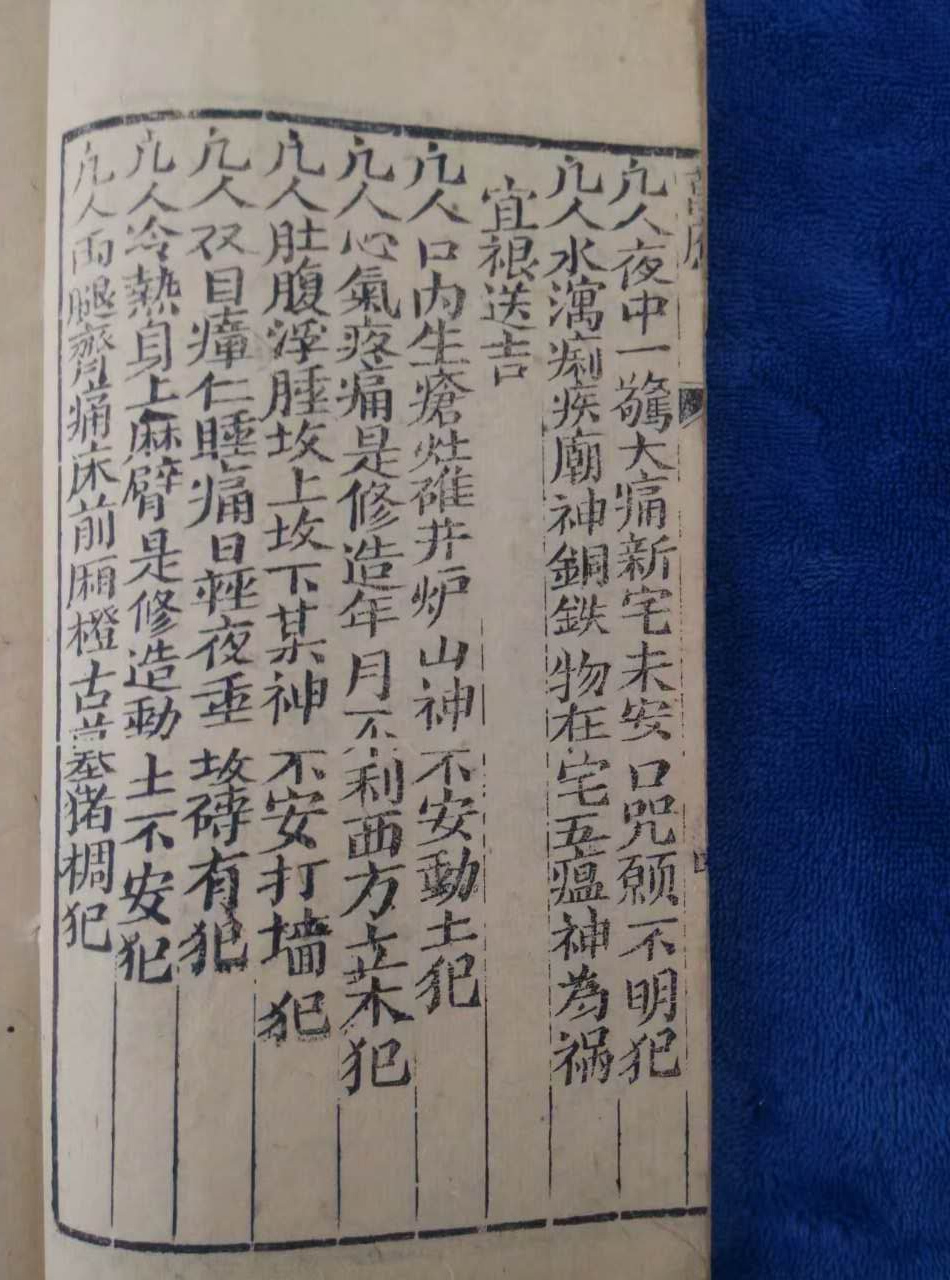 凢人夜中一驚大痛新宅未安口咒願不明犯
凢人水瀉痢疾廟神銅鉄物在宅五瘟神為禍
宜禳送吉
凢人口內生瘡灶碓井炉山神不安動土犯
凢人心氣疼痛是修造年月不利西方立菜犯
凢人肚腹浮腫坟上坟下某神不安打墙犯
凢人双目瘴仁腫痛日輕夜重坟磚有犯
凢人冷熱身上麻臂是修造動土不安犯
凢人両腿齊痛床前厢橙古墓猪椆犯